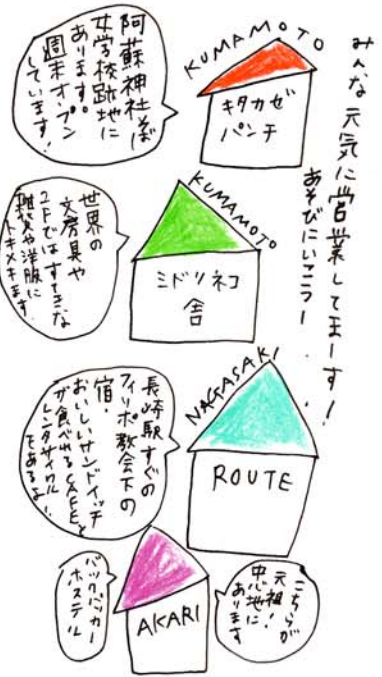 みんな元気に営業してまーす!
あそびにいこうー!
KUMAMOTO
キタカゼ
パンチ
阿蘇神社そば
女学校跡地に
あります。
週末オープン
しています!
KUMAMOTO
ミドリネコ
舎
世界の
文房具や
2Fではすてきな
雑貨や洋服に
トキメキます
NAGASAKI
ROUTE
長崎駅すぐの
フィリッポ教会下の
宿。
おいしいサンドイッチ
が食べれるCAFEと
レンタサイクル
であるよ!
AKARI
こちらが
元祖!
中心地に
あります
バックパッカー
ホステル